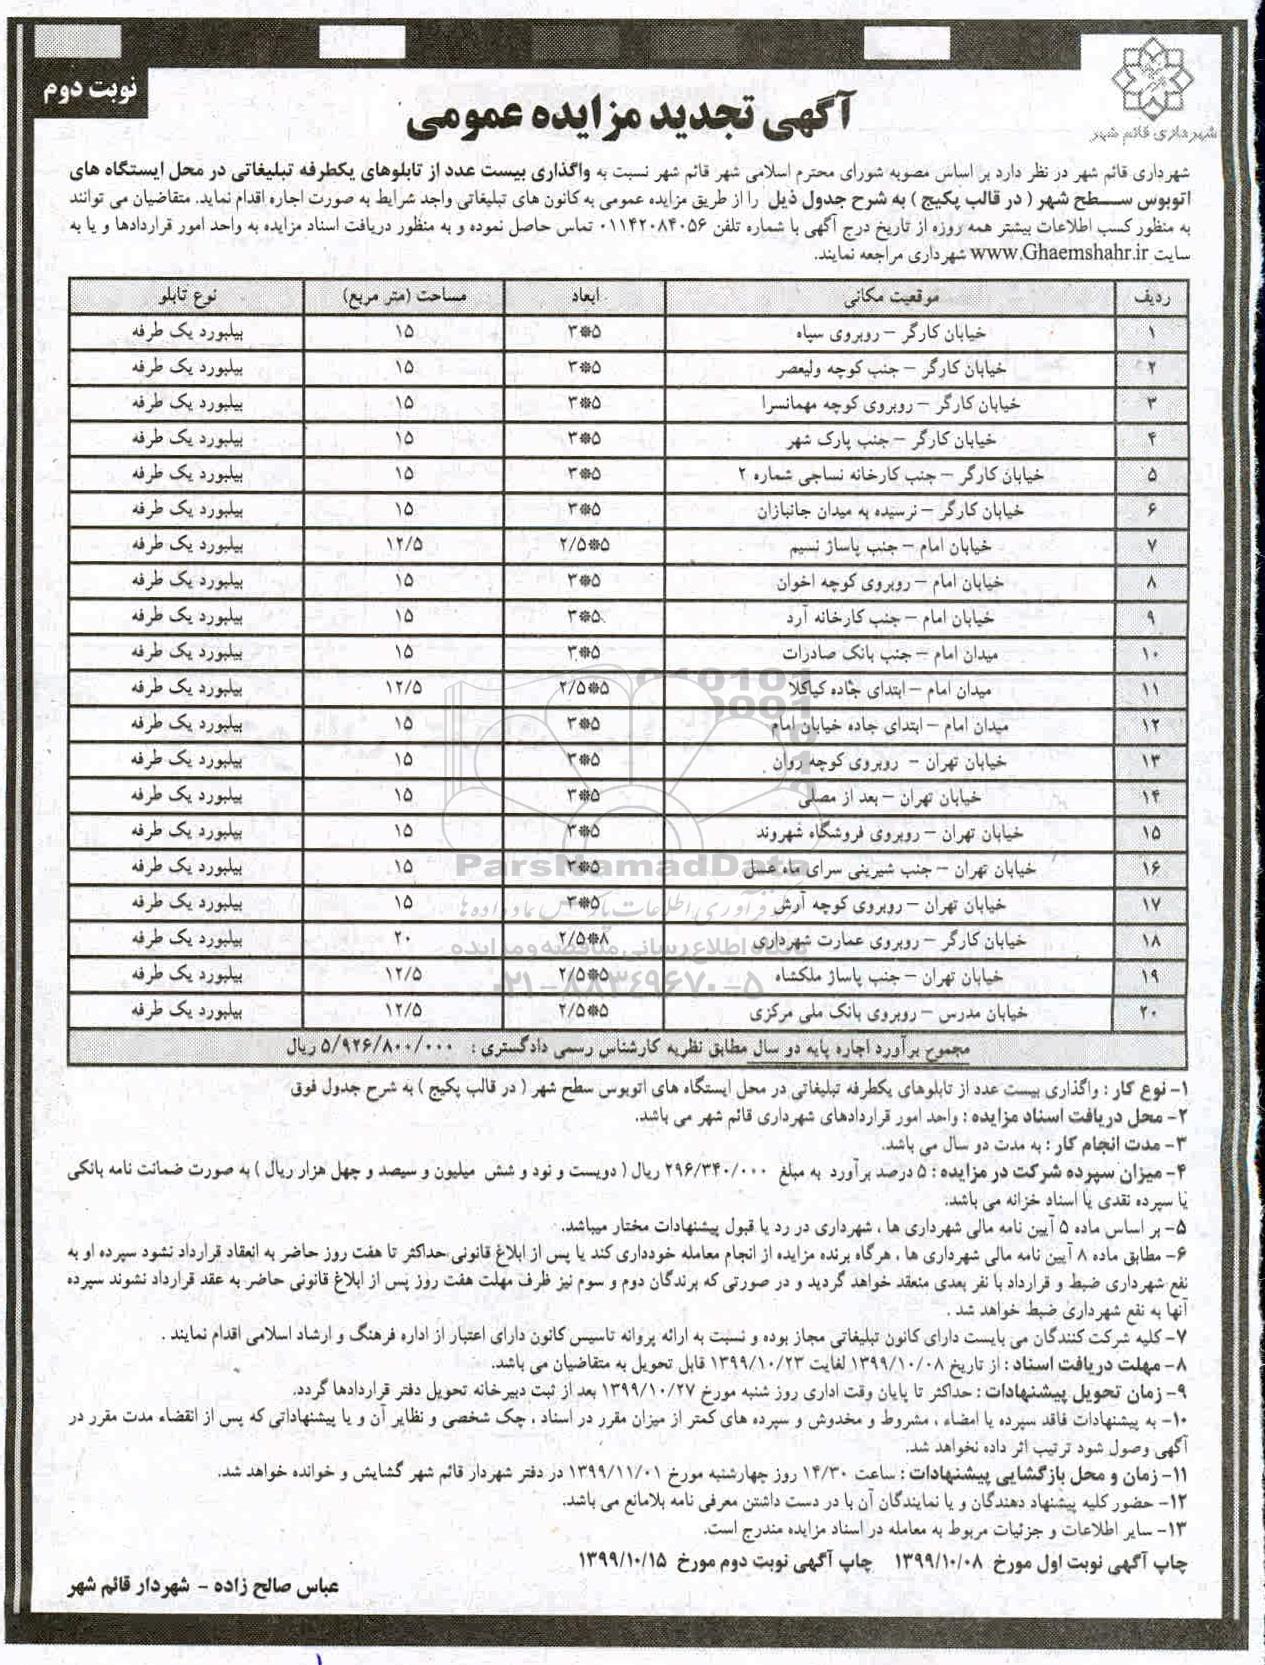 نوبت دوم
شهرداری قائم شهر
آگهی تجدید مزایده عمومی
شهرداری قائم شهر در نظر دارد بر اساس مصوبه شورای محترم اسلامی شهر قائم شهر نسبت به واگذاری بیست عدد از تابلوهای یکطرفه تبلیغاتی در محل ایستگاه های
اتوبوس سطح شهر ( در قالب پکیج ) به شرح جدول ذیل را از طریق مزایده عمومی به کانون های تبلیغاتی واجد شرایط به صورت اجاره اقدام نماید. متقاضیان می توانند
به منظور کسب اطلاعات بیشتر همه روزه از تاریخ درج آگهی با شماره تلفن ۰۱۱۴۲۰۸۴۰۵۶ تماس حاصل نموده و به منظور دریافت اسناد مزایده به واحد امور قراردادها و یا به
سایت www.Ghaemshahr.ir شهرداری مراجعه نمایند.
ردیف موقعیت مکانی ابعاد مساحت (متر مربع) نوع تابلو
۱ خیابان کارگر – روبروی سپاه ۵*۳ ۱۵ بیلبورد یک طرفه
۲ خیابان کارگر – جنب کوچه ولیعصر ۵*۳ ۱۵ بیلبورد یک طرفه
۳ خیابان کارگر – روبروی کوچه مهمانسرا ۵*۳ ۱۵ بیلبورد یک طرفه
۴ خیابان کارگر – جنب پارک شهر ۵*۳ ۱۵ بیلبورد یک طرفه
۵ خیابان کارگر – جنب کارخانه نساجی شماره ۲ ۵*۳ ۱۵ بیلبورد یک طرفه
۶ خیابان کارگر – نرسیده به میدان جانبازان ۵*۳ ۱۵ بیلبورد یک طرفه
۷ خیابان امام – جنب پاساژ نسیم ۵*۲/۵ ۱۲/۵ بیلبورد یک طرفه
۸ خیابان امام – روبروی کوچه اخوان ۵*۳ ۱۵ بیلبورد یک طرفه
۹ خیابان امام – جنب کارخانه آرد ۵*۳ ۱۵ بیلبورد یک طرفه
۱۰ میدان امام – جنب بانک صادرات ۵*۳ ۱۵ بیلبورد یک طرفه
۱۱ میدان امام – ابتدای جاده کیاکلا ۵*۲/۵ ۱۲/۵ بیلبورد یک طرفه
۱۲ میدان امام – ابتدای جاده خیابان امام ۵*۳ ۱۵ بیلبورد یک طرفه
۱۳ خیابان تهران – روبروی کوچه روان ۵*۳ ۱۵ بیلبورد یک طرفه
۱۴ خیابان تهران – بعد از مصلی ۵*۳ ۱۵ بیلبورد یک طرفه
۱۵ خیابان تهران – روبروی فروشگاه شهروند ۵*۳ ۱۵ بیلبورد یک طرفه
۱۶ خیابان تهران – جنب شیرینی سرای ماه عسل ۵*۳ ۱۵ بیلبورد یک طرفه
۱۷ خیابان تهران – روبروی کوچه آرش ۵*۳ ۱۵ بیلبورد یک طرفه
۱۸ خیابان کارگر – روبروی عمارت شهرداری ۸*۲/۵ ۲۰ بیلبورد یک طرفه
۱۹ خیابان تهران – جنب پاساژ ملکشاه ۵*۲/۵ ۱۲/۵ بیلبورد یک طرفه
۲۰ خیابان مدرس – روبروی بانک ملی مرکزی ۵*۲/۵ ۱۲/۵ بیلبورد یک طرفه
مجموع برآورد اجاره پایه دو سال مطابق نظریه کارشناس رسمی دادگستری : ۵/۹۲۶/۸۰۰/۰۰۰ ریال
ParsNamadData
۰۲۱-۸۸۳۴۹۶۷۰-۵
۱- نوع کار : واگذاری بیست عدد از تابلوهای یکطرفه تبلیغاتی در محل ایستگاه های اتوبوس سطح شهر ( در قالب پکیج ) به شرح جدول فوق
۲- محل دریافت اسناد مزایده : واحد امور قراردادهای شهرداری قائم شهر می باشد.
۳- مدت انجام کار : به مدت دو سال می باشد.
۴- میزان سپرده شرکت در مزایده : ۵ درصد برآورد به مبلغ ۲۹۶/۳۴۰/۰۰۰ ریال ( دویست و نود و شش میلیون و سیصد و چهل هزار ریال ) به صورت ضمانت نامه بانکی
یا سپرده نقدی یا اسناد خزانه می باشد.
۵- بر اساس ماده ۵ آیین نامه مالی شهرداری ها ، شهرداری در رد یا قبول پیشنهادات مختار میباشد.
۶- مطابق ماده ۸ آیین نامه مالی شهرداری ها ، هرگاه برنده مزایده از انجام معامله خودداری کند یا پس از ابلاغ قانونی حداکثر تا هفت روز حاضر به انعقاد قرارداد نشود سپرده او به
نفع شهرداری ضبط و قرارداد با نفر بعدی منعقد خواهد گردید و در صورتی که برندگان دوم و سوم نیز ظرف مهلت هفت روز پس از ابلاغ قانونی حاضر به عقد قرارداد نشوند سپرده
آنها به نفع شهرداری ضبط خواهد شد .
۷- کلیه شرکت کنندگان می بایست دارای کانون تبلیغاتی مجاز بوده و نسبت به ارائه پروانه تاسیس کانون دارای اعتبار از اداره فرهنگ و ارشاد اسلامی اقدام نمایند .
۸- مهلت دریافت اسناد : از تاریخ ۱۳۹۹/۱۰/۰۸ لغایت ۱۳۹۹/۱۰/۲۳ قابل تحویل به متقاضیان می باشد.
۹- زمان تحویل پیشنهادات : حداکثر تا پایان وقت اداری روز شنبه مورخ ۱۳۹۹/۱۰/۲۷ بعد از ثبت دبیرخانه تحویل دفتر قراردادها گردد.
۱۰- به پیشنهادات فاقد سپرده یا امضاء ، مشروط و مخدوش و سپرده های کمتر از میزان مقرر در اسناد ، چک شخصی و نظایر آن و یا پیشنهاداتی که پس از انقضاء مدت مقرر در
آگهی وصول شود ترتیب اثر داده نخواهد شد.
۱۱- زمان و محل بازگشایی پیشنهادات : ساعت ۱۴/۳۰ روز چهارشنبه مورخ ۱۳۹۹/۱۱/۰۱ در دفتر شهردار قائم شهر گشایش و خوانده خواهد شد.
۱۲- حضور کلیه پیشنهاد دهندگان و یا نمایندگان آن با در دست داشتن معرفی نامه بلامانع می باشد.
۱۳- سایر اطلاعات و جزئیات مربوط به معامله در اسناد مزایده مندرج است.
چاپ آگهی نوبت اول مورخ ۱۳۹۹/۱۰/۰۸ چاپ آگهی نوبت دوم مورخ ۱۳۹۹/۱۰/۱۵
عباس صالح زاده - شهردار قائم شهر